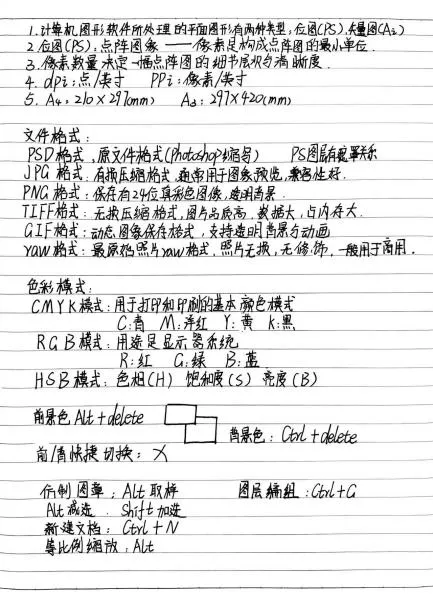 1.计算机图形软件所处理的平面图形有两种类型,位图(PS).矢量图(Ai)
2 位图(PS):点阵图像 —— 像素是构成点阵图的最小单位.
3.像素数量决定一幅点阵图的细节层次与清晰度.
4. dpi:点/英寸 PPi:像素/英寸
5. A4:210×297(mm) A3:297×420(mm)
文件格式:
PSD格式.原文件格式(Photoshop缩写) PS图层有遮罩关系
JPG 格式.有损压缩格式.通常用于图像预览,兼容性好.
PNG格式:保存有24位真彩色图像,透明背景.
TIFF格式:无损压缩格式,图片品质高.数据大,占内存大.
GIF格式:动态图像保存格式,支持透明背景与动画
raw格式:最原档照片raw格式,照片无损,无修饰,一般用于商用.
色彩模式:
CMYK模式:用于打印和印刷的基本颜色模式
C:青 M:洋红 Y:黄 K:黑
RGB模式:用途是显示器系统
R:红 G:绿 B:蓝
HSB模式:色相(H) 饱和度(S) 亮度(B)
前景色 Alt+delete
背景色:Ctrl+delete
前/背快捷切换:X
仿制图章:Alt取样 图层编组:Ctrl+G
Alt减选 Shift加选
新建文档:Ctrl+N
等比例缩放:Alt